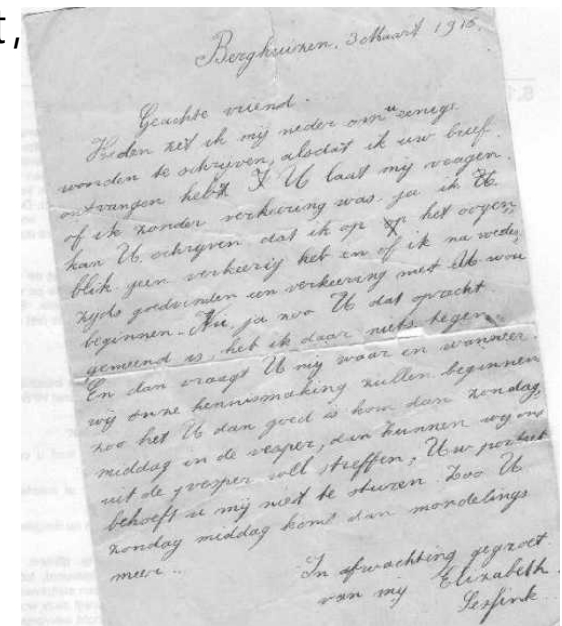 t,
Berghuizen, 3 Maart 1915.
Geachte vriend.
Heden zet ik mij neder om u eenige
woorden te schrijven, alsdat ik uw brief
ontvangen heb U laat mij vragen
of ik zonder verkeering was. ja ik
kan U schrijven dat ik op op het oogen
blik geen verkeerij heb en of ik na weder
zijds goedvinden een verkeering met U wou
beginnen. Nu ja zoo U dat oprecht
gemeend is heb ik daar niets tegen
En dan vraagt U mij waar en wanneer
wij onze kennismaking zullen beginnen
zoo het U dan goed is kom dan zondag
middag in de vesper, dan kunnen wij ons
uit de vesper wel treffen, Uw portret
behoeft u mij niet te sturen. Zoo U
zondag middag komt dan mondelings
meer..
In afwachting gegroet
van mij Elizabeth